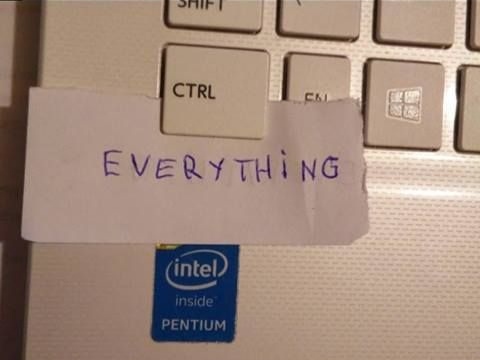 SHIFT
CTRL
FN
EVERYTHiNG
intel
inside™
PENTIUM